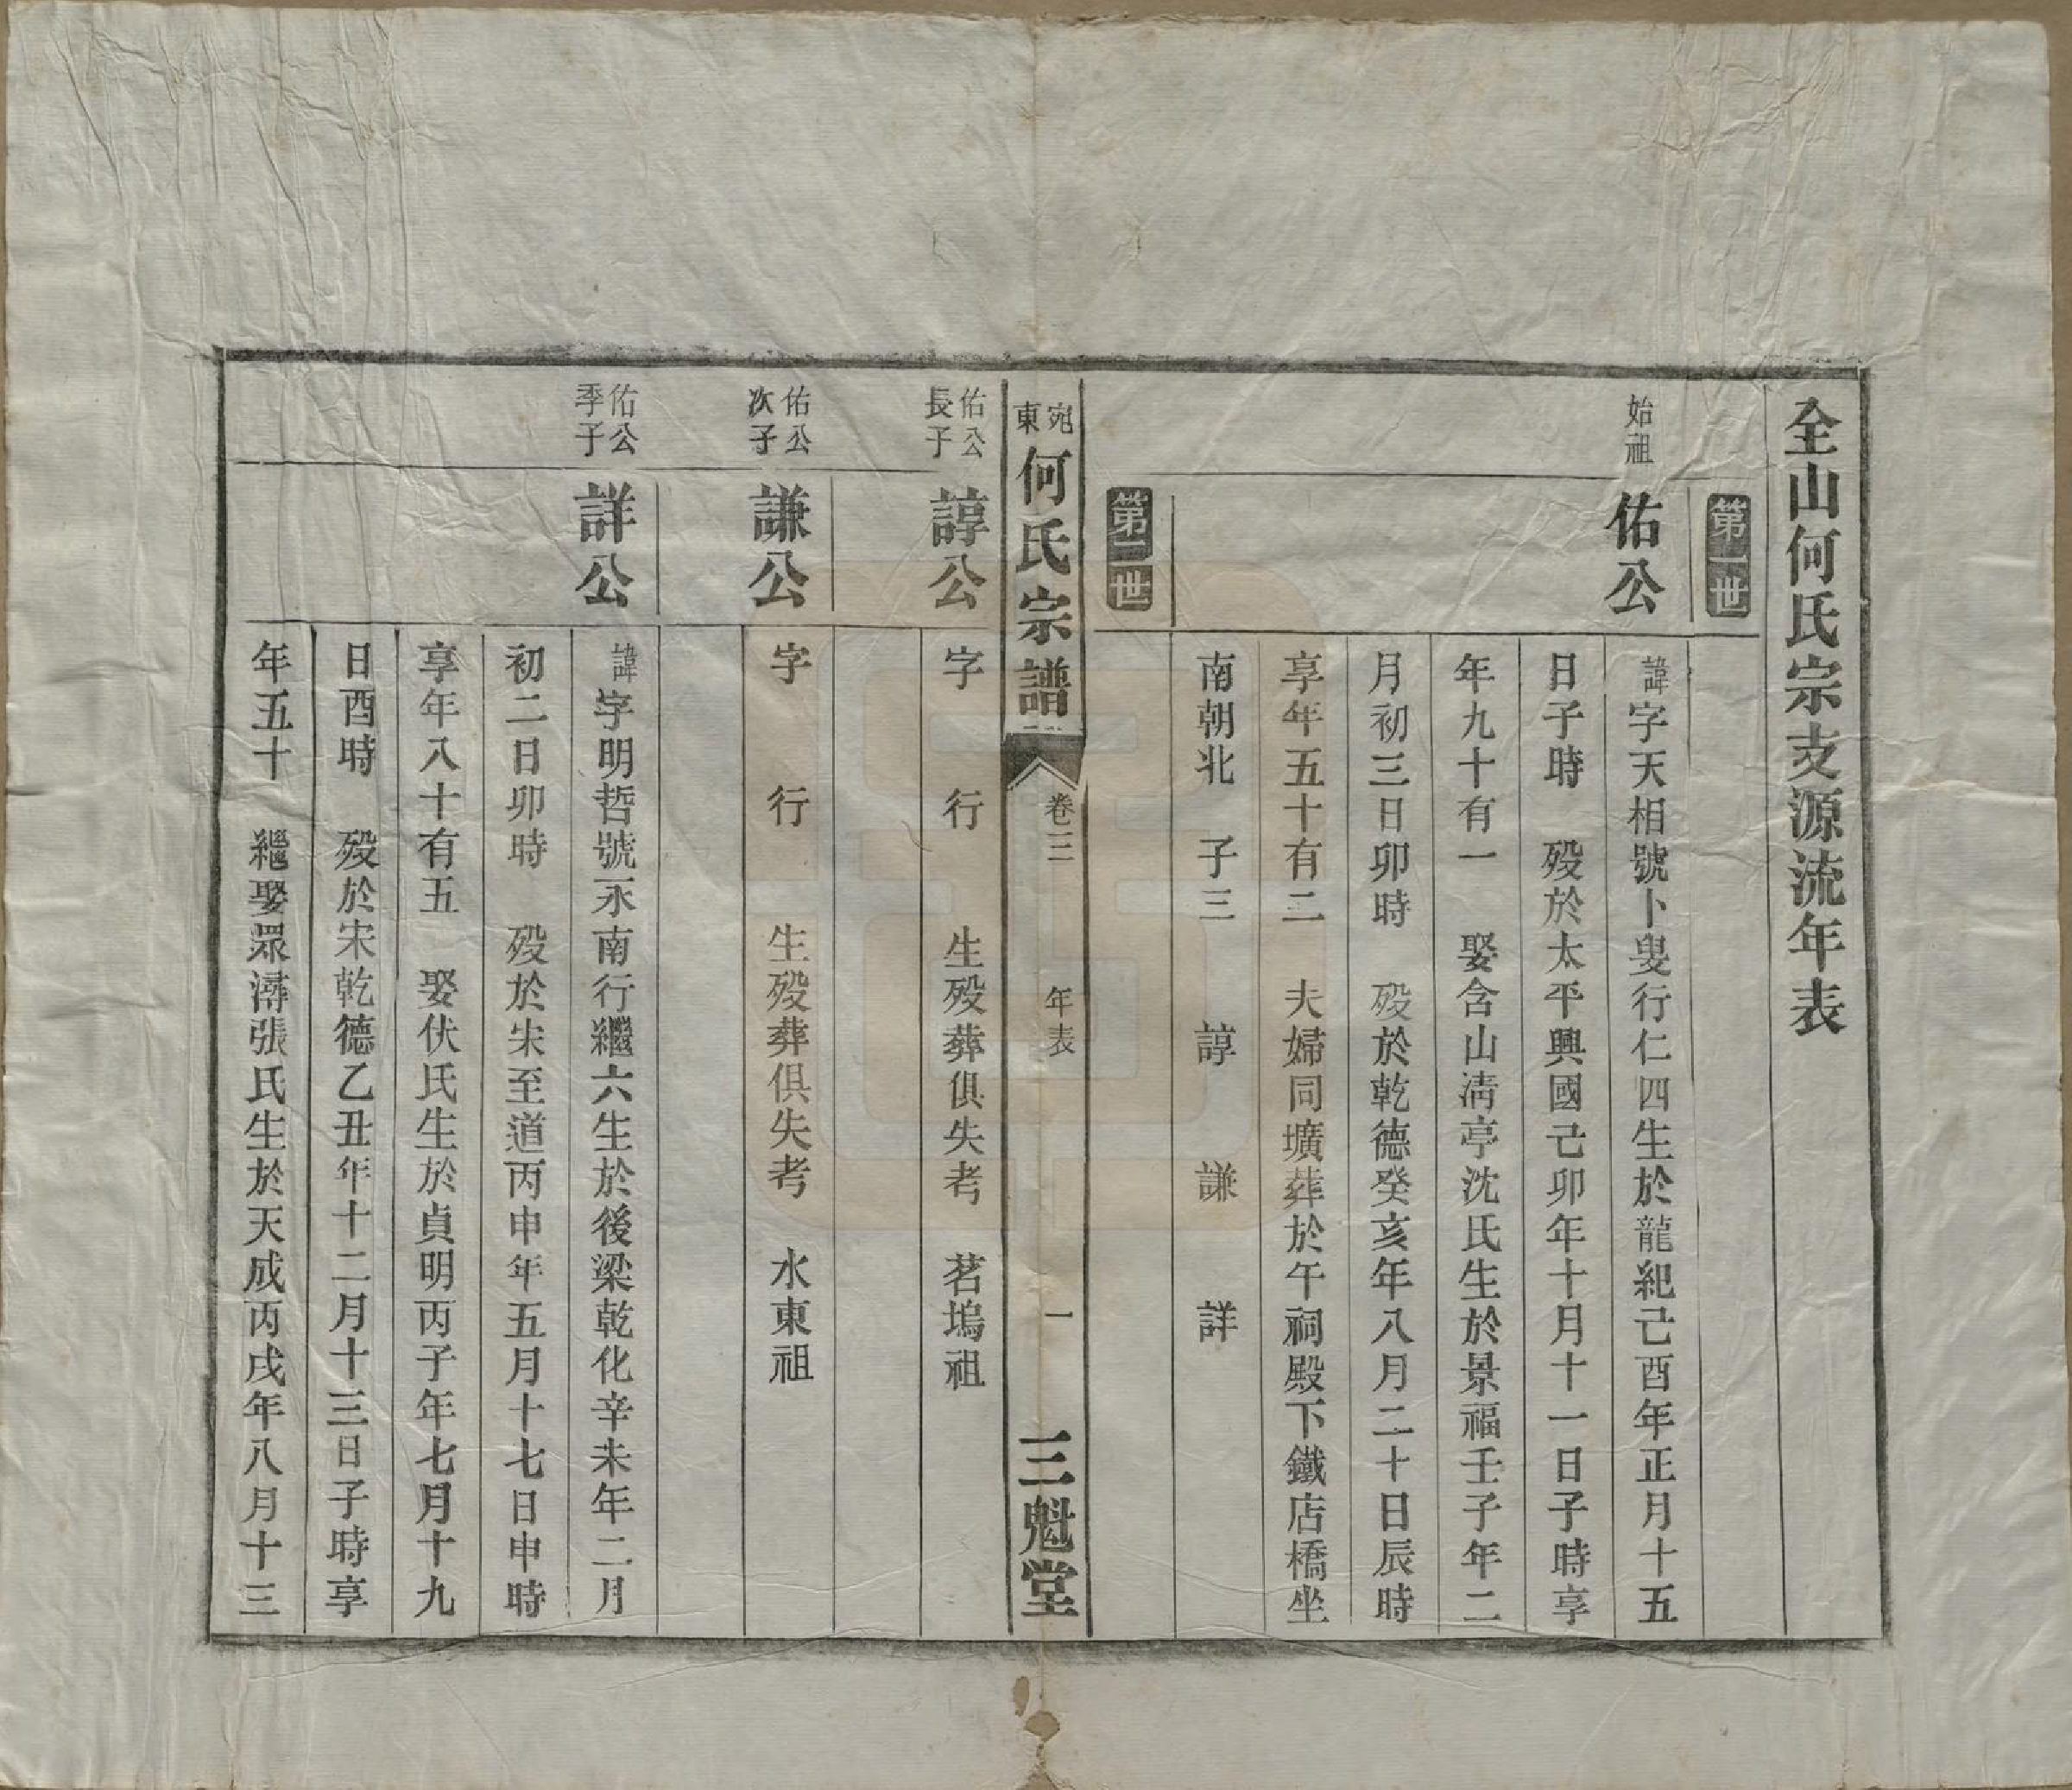 全山何氏宗支源流年表
第一世
始祖
佑公
諱字天相號卜叟行仁四生於龍紀己酉年正月十五
日子時 歿於太平興國己卯年十月十一日子時享
年九十有一 娶含山清亭沈氏生於景福壬子年二
月初三日卯時 歿於乾德癸亥年八月二十日辰時
享年五十有二 夫婦同壙葬於午祠殿下鐵店橋坐
南朝北 子三 諄 謙 詳
第二世
宛東 何氏宗譜 卷三 年表 一 三魁堂
佑公長子
諄公
字 行 生歿葬俱失考 茗塢祖
佑公次子
謙公
字 行 生歿葬俱失考 水東祖
佑公季子
詳公
諱字明哲號永南行繼六生於後梁乾化辛未年二月
初二日卯時 歿於宋至道丙申年五月十七日申時
享年八十有五 娶伏氏生於貞明丙子年七月十九
日酉時 歿於宋乾德乙丑年十二月十三日子時享
年五十 繼娶眾潯張氏生於天成丙戌年八月十三